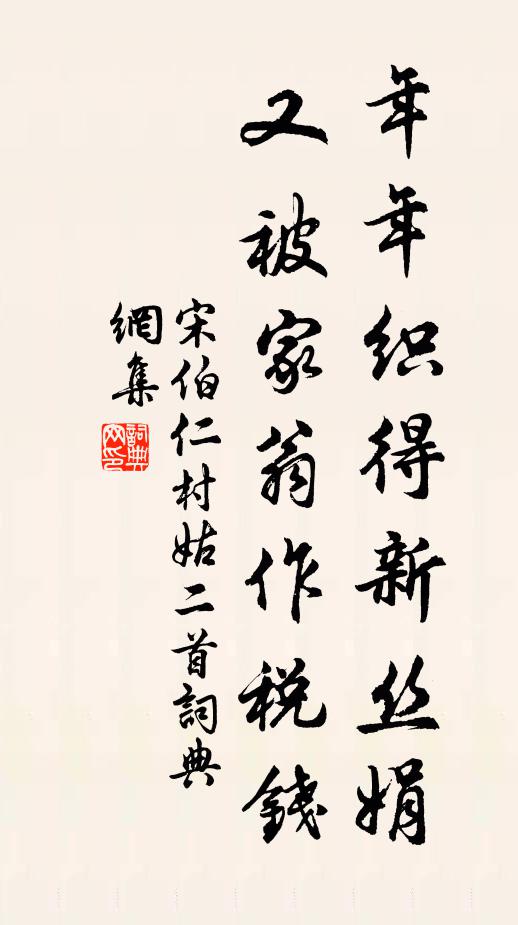 年年织得新丝娟
又被家翁作税錢
宋伯仁村姑二首詞典
網集
詞典网印